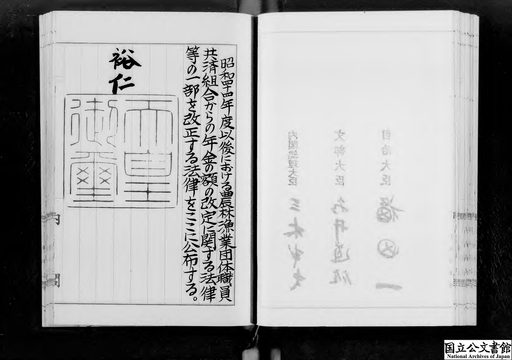 昭和四十四年度以後における農林漁業団体職員
共済組合からの年金の額の改定に関する法律
等の一部を改正する法律をここに公布する。
裕仁
天皇
御璽
内閣
自治大臣 福田一
文部大臣 永井道雄
内閣総理大臣 三木武夫
国立公文書館
National Archives of Japan